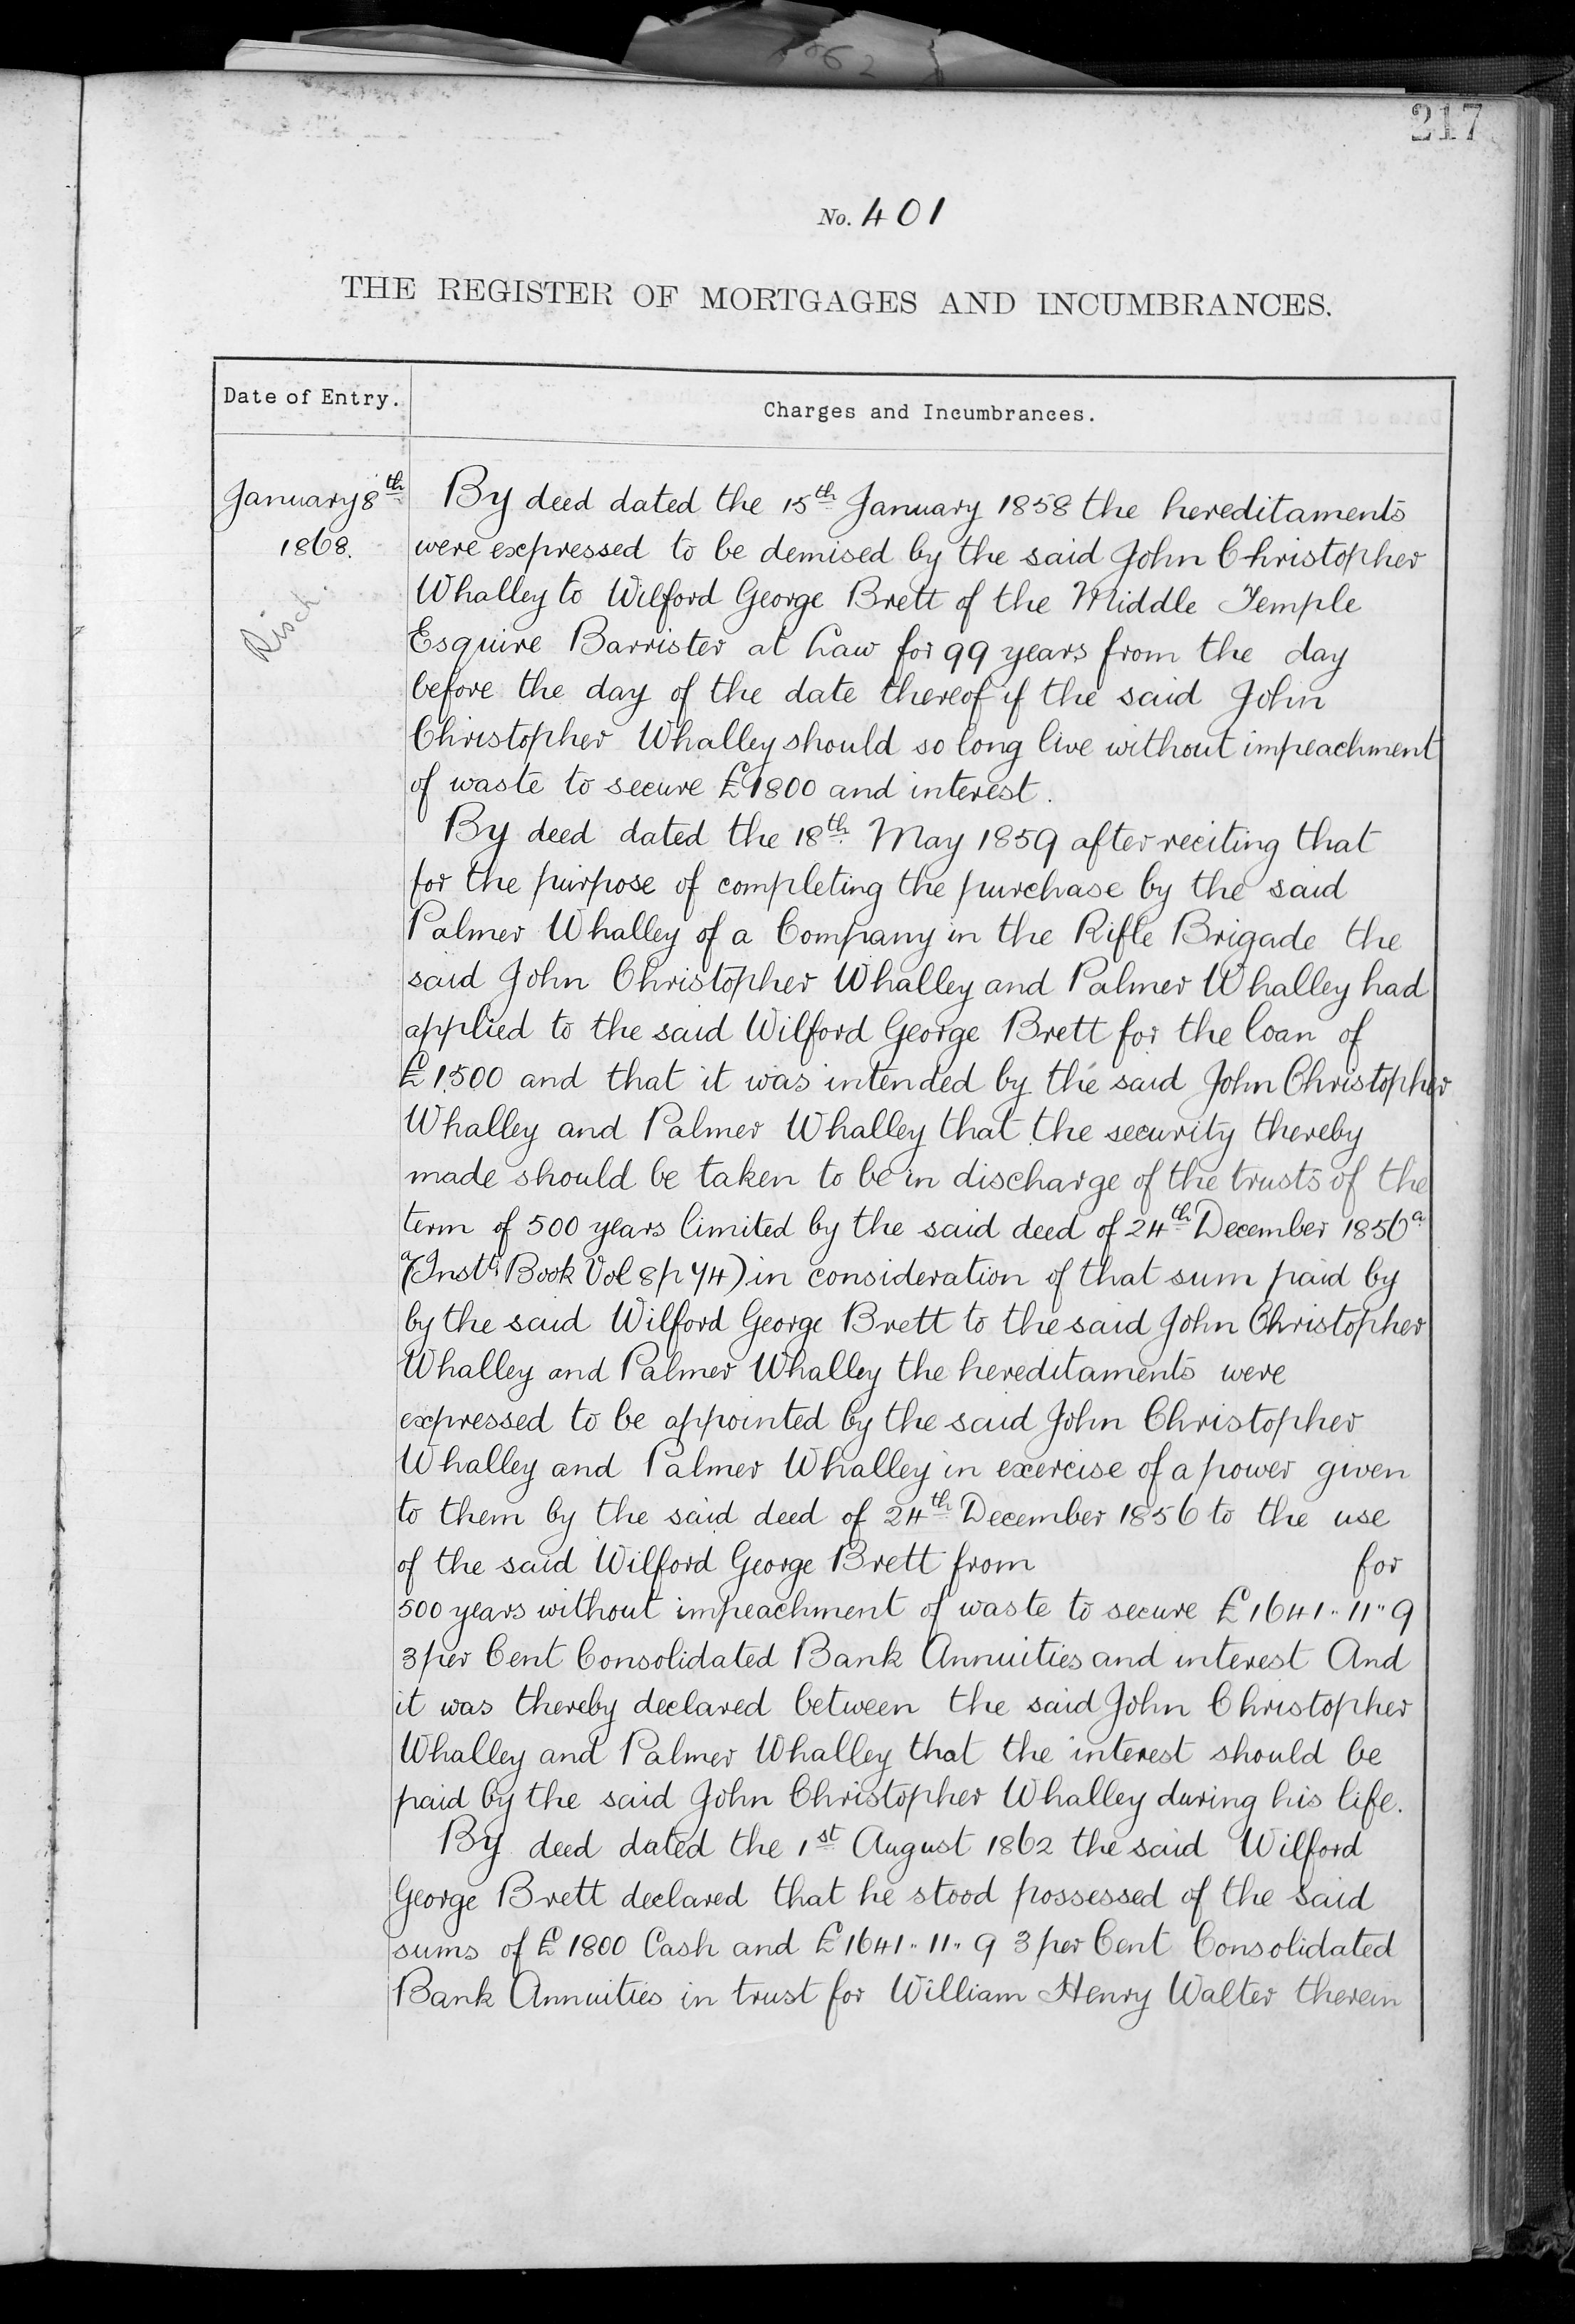 217
No. 401
THE REGISTER OF MORTGAGES AND INCUMBRANCES.
Date of Entry.
Charges and Incumbrances.
January 8th
1868.
Disch.
By deed dated the 15th January 1858 the hereditaments
were expressed to be demised by the said John Christopher
Whalley to Wilford George Brett of the Middle Temple
Esquire Barrister at Law for 99 years from the day
before the day of the date thereof if the said John
Christopher Whalley should so long live without impeachment
of waste to secure £1800 and interest.
By deed dated the 18th May 1859 after reciting that
for the purpose of completing the purchase by the said
Palmer Whalley of a Company in the Rifle Brigade the
said John Christopher Whalley and Palmer Whalley had
applied to the said Wilford George Brett for the loan of
£1500 and that it was intended by the said John Christopher
Whalley and Palmer Whalley that the security thereby
made should be taken to be in discharge of the trusts of the
term of 500 years limited by the said deed of 24th December 1856 a
a (Inst. Book Vol 8 p 74) in consideration of that sum paid by
by the said Wilford George Brett to the said John Christopher
Whalley and Palmer Whalley the hereditaments were
expressed to be appointed by the said John Christopher
Whalley and Palmer Whalley in exercise of a power given
to them by the said deed of 24th December 1856 to the use
of the said Wilford George Brett from for
500 years without impeachment of waste to secure £1641.. 11.. 9
3 per Cent Consolidated Bank Annuities and interest And
it was thereby declared between the said John Christopher
Whalley and Palmer Whalley that the interest should be
paid by the said John Christopher Whalley during his life.
By deed dated the 1st August 1862 the said Wilford
George Brett declared that he stood possessed of the said
sums of £1800 Cash and £1641.. 11.. 9 3 per Cent Consolidated
Bank Annuities in trust for William Henry Walter therein